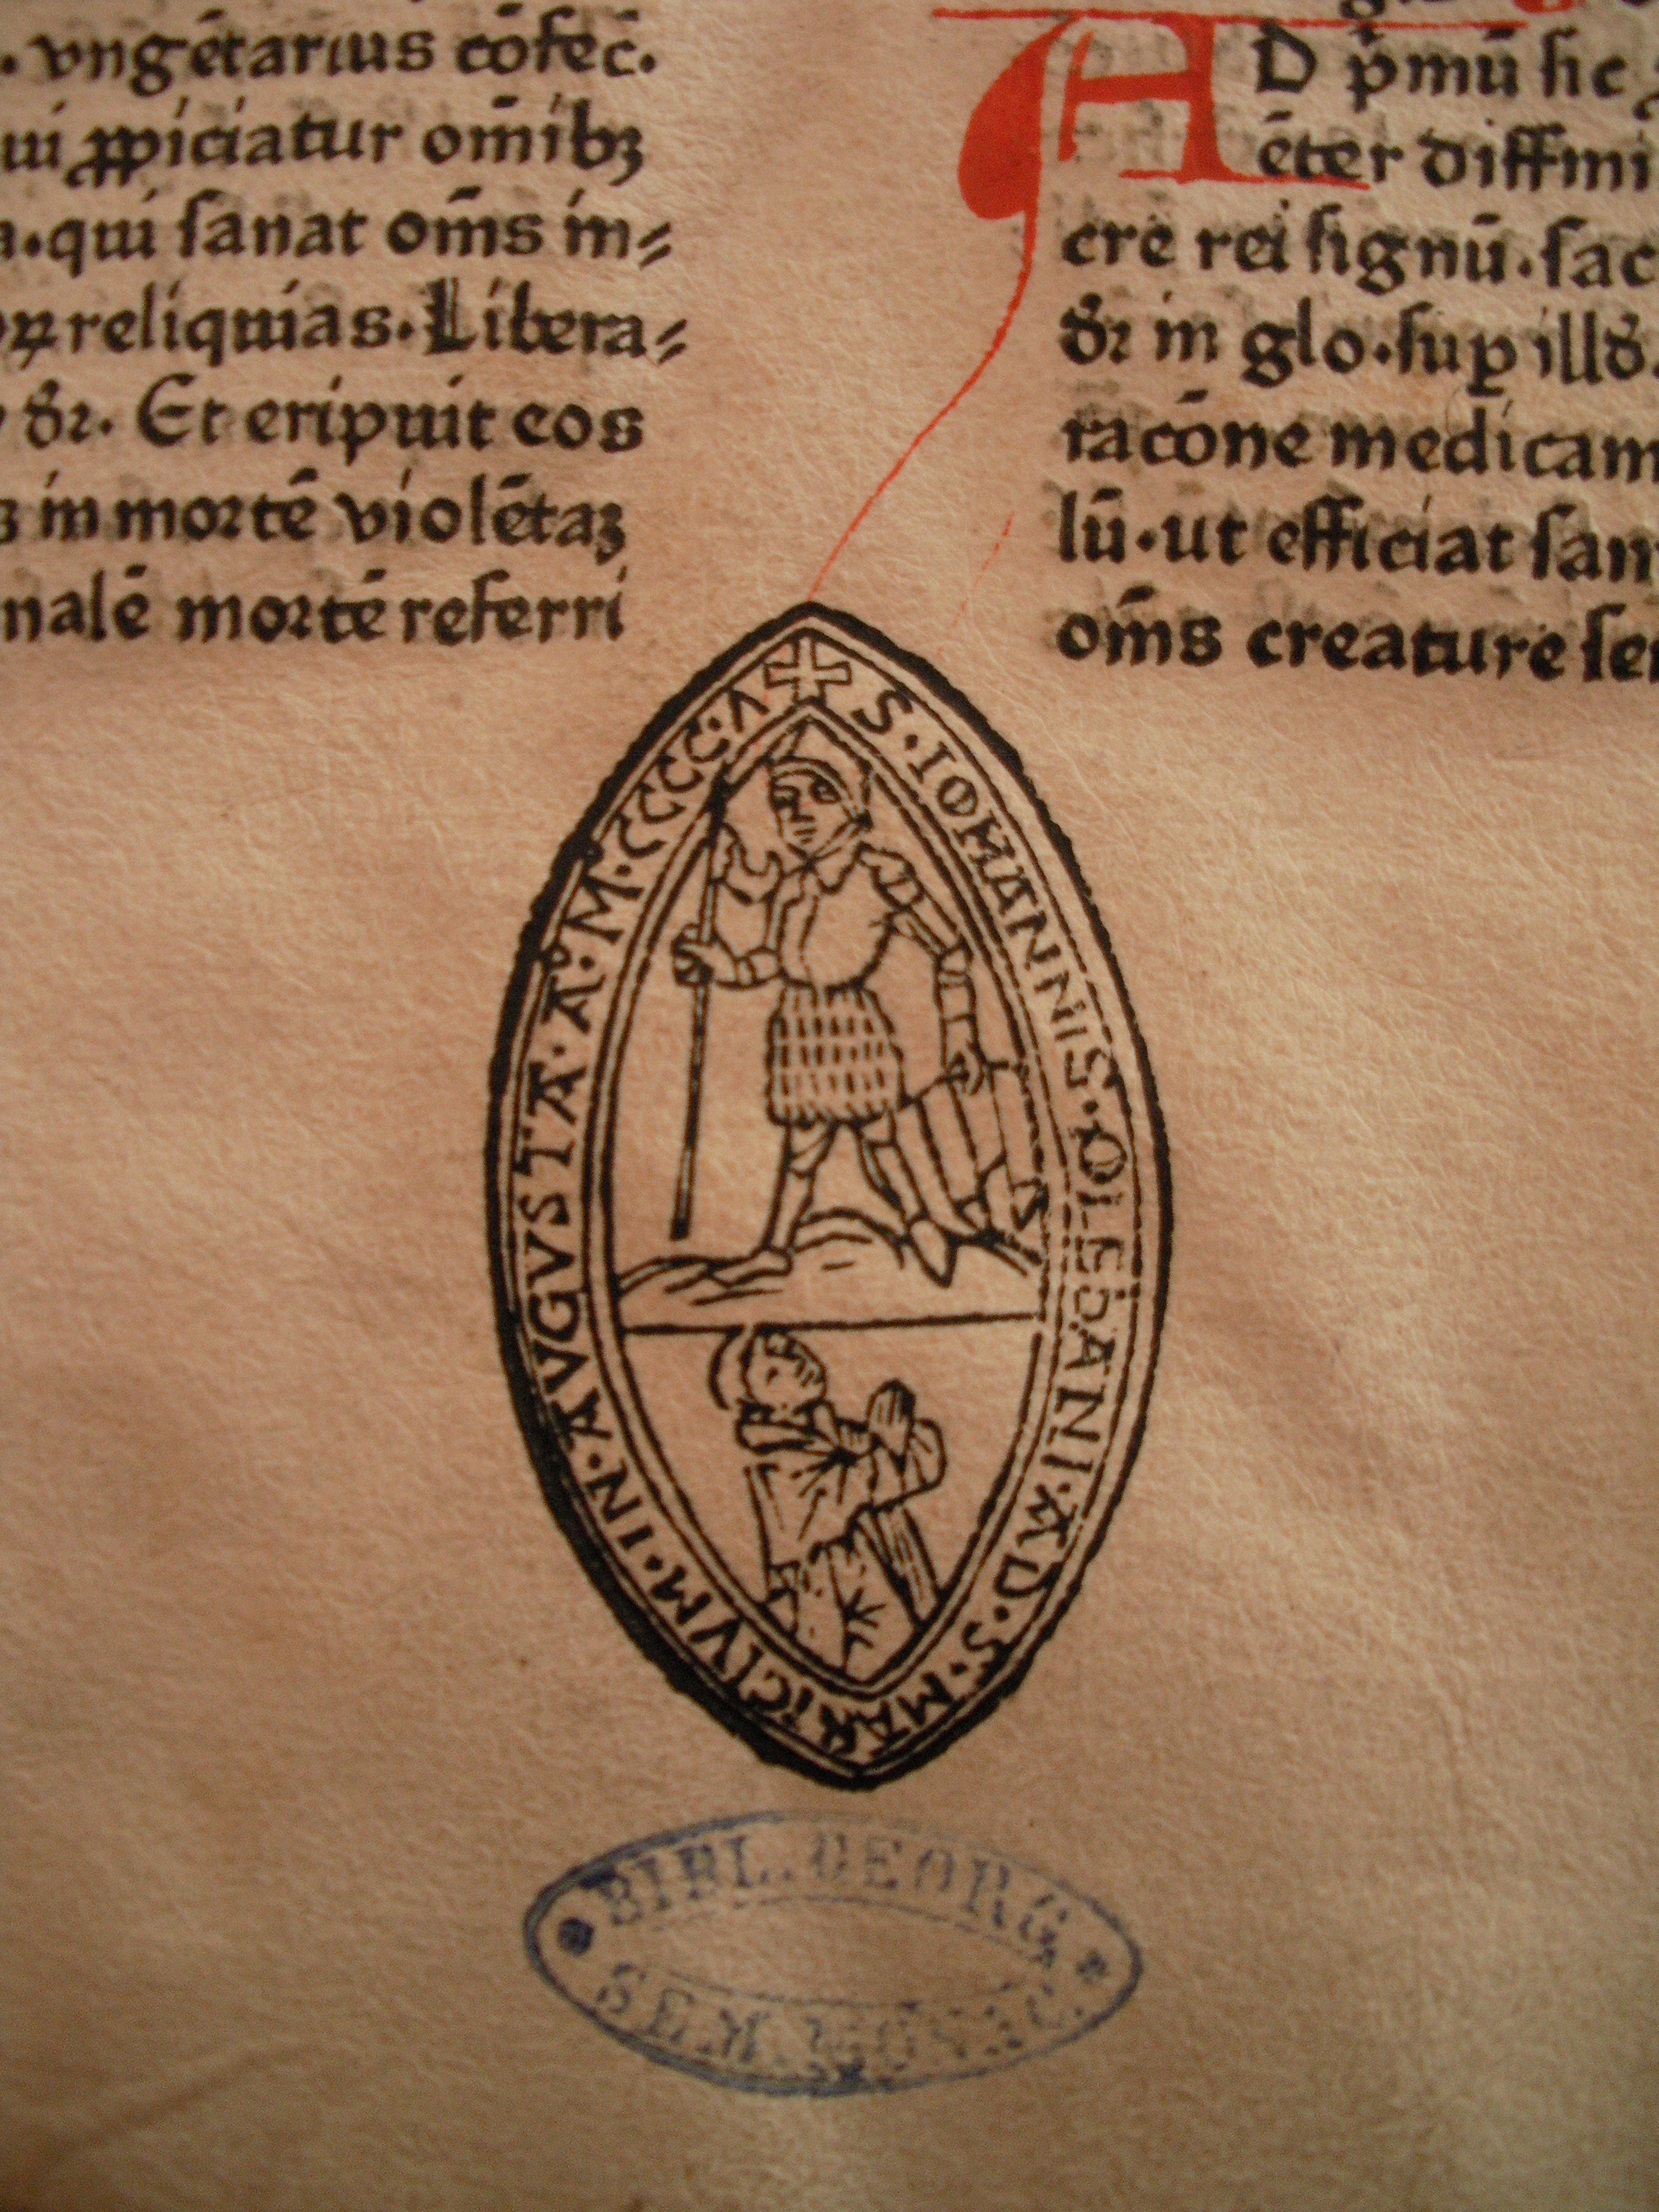 . vngētarius cōfec̄.
ui ꝓpiciatur om̄ibꝫ
a.qui sanat om̄s in⸗
oꝝ reliquias. Libera⸗
dr̄. Et eripuit eos
in mortē violētaꝫ
nalē mortē referri
AD p̄mū sic
ēter diffini
cre rei signū. sac
dr̄ in glo. suꝑ illd̄.
racōne medicam
lū. ut efficiat san
om̄s creature se
✠ S · IOHANNIS · OLEDANI · AD · S · MARICIVM · IN · AVGVSTA · A° · M · CCCC · Λ
BIBL. GEORG
SEM.